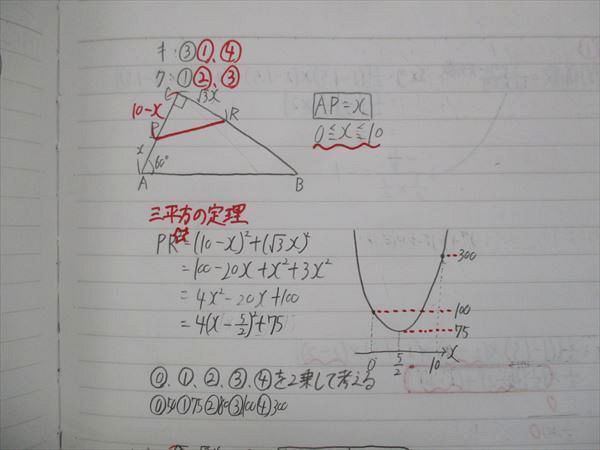 キ:③①、④
ク:①②、③
C
√3x
10-x
R
P
x
60°
A
B
AP=x
0≦x≦10
三平方の定理
PR²=(10-x)²+(√3x)²
=100-20x+x²+3x²
=4x²-20x+100
=4(x-5/2)²+75
300
100
75
0
5/2
10
x
⓪、①、②、③、④を2乗して考える
⓪50①75②80③100④300